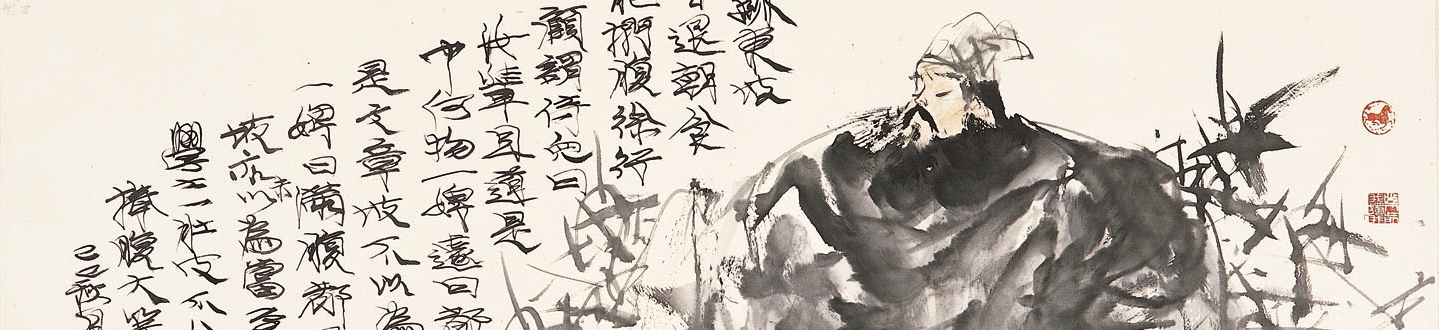 東坡
退朝食
捫腹徐行
顧謂侍兒曰
汝輩且道是
中何物一婢遽曰都
是文章坡不以為
一婢曰滿腹都
坡亦未以為當至
學士一肚皮不
捧腹大笑